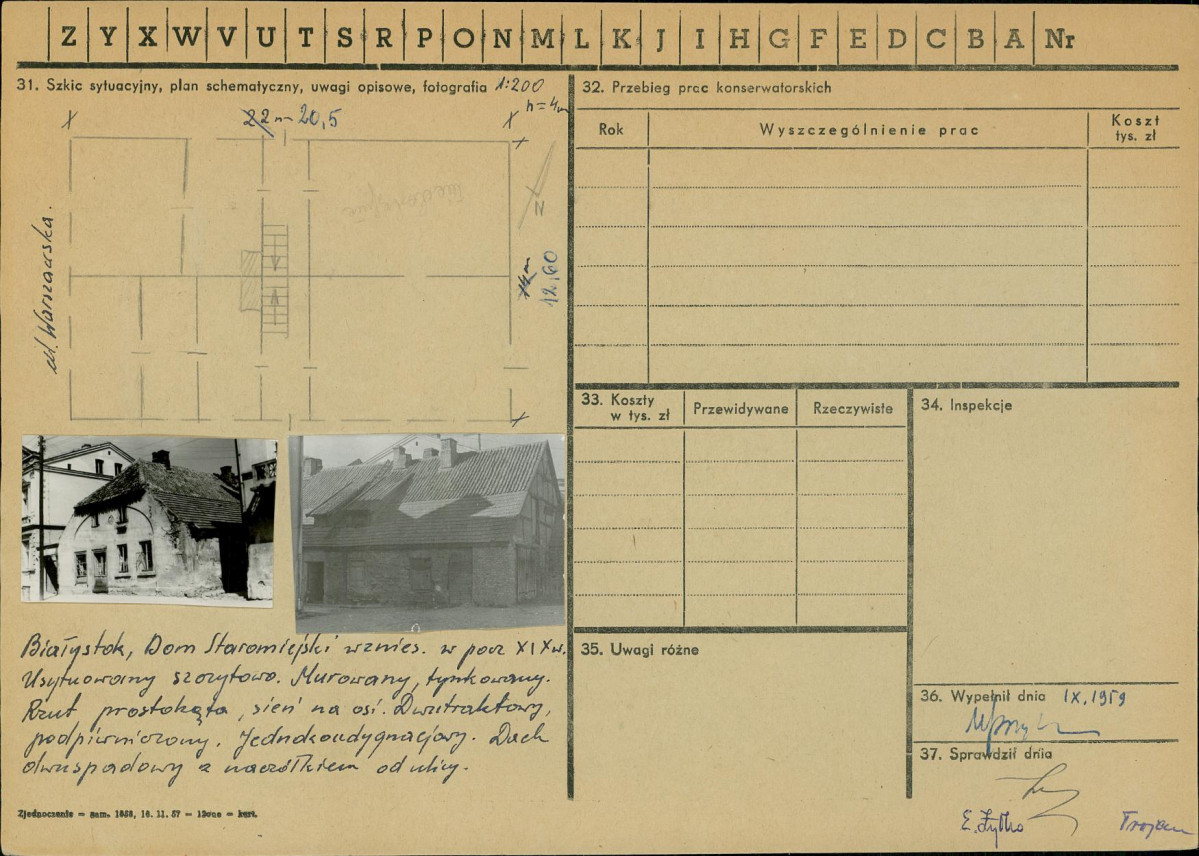 Z Y X W V U T S R P O N M L K J I H G F E D C B A Nr
31. Szkic sytuacyjny, plan schematyczny, uwagi opisowe, fotografia 1:200
h = 4m
22 m 20,5
ul. Warszawska.
N
14m
12,60
Białystok, Dom Staromiejski wznies. w pocz XIX w.
Usytuowany szczytowo. Murowany, tynkowany.
Rzut prostokąta, sień na osi. Dwutraktowy,
podpiwniczony. Jednokondygnacjowy. Dach
dwuspadowy z naczółkiem od ulicy.
Zjednoczenie = zam. 1858, 16. 11. 57 =
32. Przebieg prac konserwatorskich
Rok
Wyszczególnienie prac
Koszt
tys. zł
33. Koszty
w tys. zł
Przewidywane
Rzeczywiste
34. Inspekcje
35. Uwagi różne
36. Wypełnił dnia IX, 1959
37. Sprawdził dnia
E. Żytko
Trojan